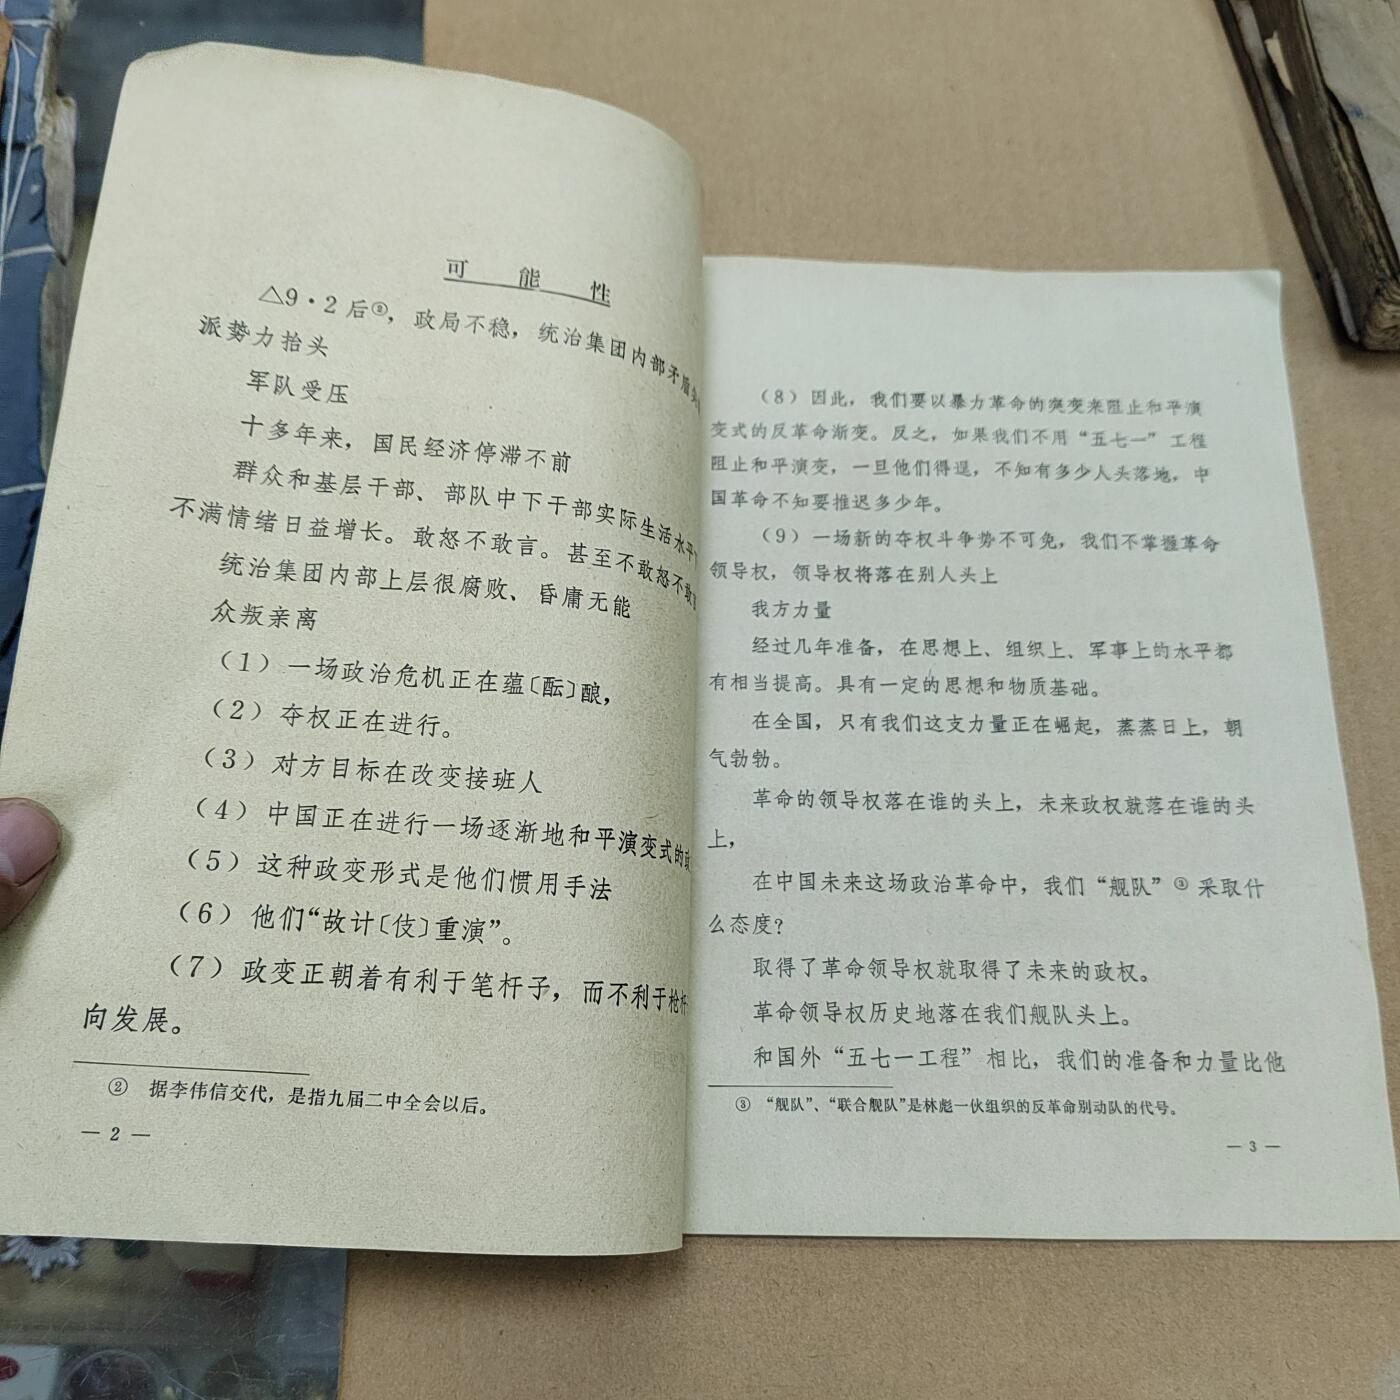 可能性
△9·2后②，政局不稳，统治集团内部矛盾尖
派势力抬头
军队受压
十多年来，国民经济停滞不前
群众和基层干部、部队中下干部实际生活水平
不满情绪日益增长。敢怒不敢言。甚至不敢怒不敢
统治集团内部上层很腐败、昏庸无能
众叛亲离
（1）一场政治危机正在蕴〔酝〕酿，
（2）夺权正在进行。
（3）对方目标在改变接班人
（4）中国正在进行一场逐渐地和平演变式的
（5）这种政变形式是他们惯用手法
（6）他们“故计〔伎〕重演”。
（7）政变正朝着有利于笔杆子，而不利于枪杆
向发展。
② 据李伟信交代，是指九届二中全会以后。
— 2 —
（8）因此，我们要以暴力革命的突变来阻止和平演
变式的反革命渐变。反之，如果我们不用“五七一”工程
阻止和平演变，一旦他们得逞，不知有多少人头落地，中
国革命不知要推迟多少年。
（9）一场新的夺权斗争势不可免，我们不掌握革命
领导权，领导权将落在别人头上
我方力量
经过几年准备，在思想上、组织上、军事上的水平都
有相当提高。具有一定的思想和物质基础。
在全国，只有我们这支力量正在崛起，蒸蒸日上，朝
气勃勃。
革命的领导权落在谁的头上，未来政权就落在谁的头
上，
在中国未来这场政治革命中，我们“舰队”③采取什
么态度？
取得了革命领导权就取得了未来的政权。
革命领导权历史地落在我们舰队头上。
和国外“五七一工程”相比，我们的准备和力量比他
③ “舰队”、“联合舰队”是林彪一伙组织的反革命别动队的代号。
— 3 —